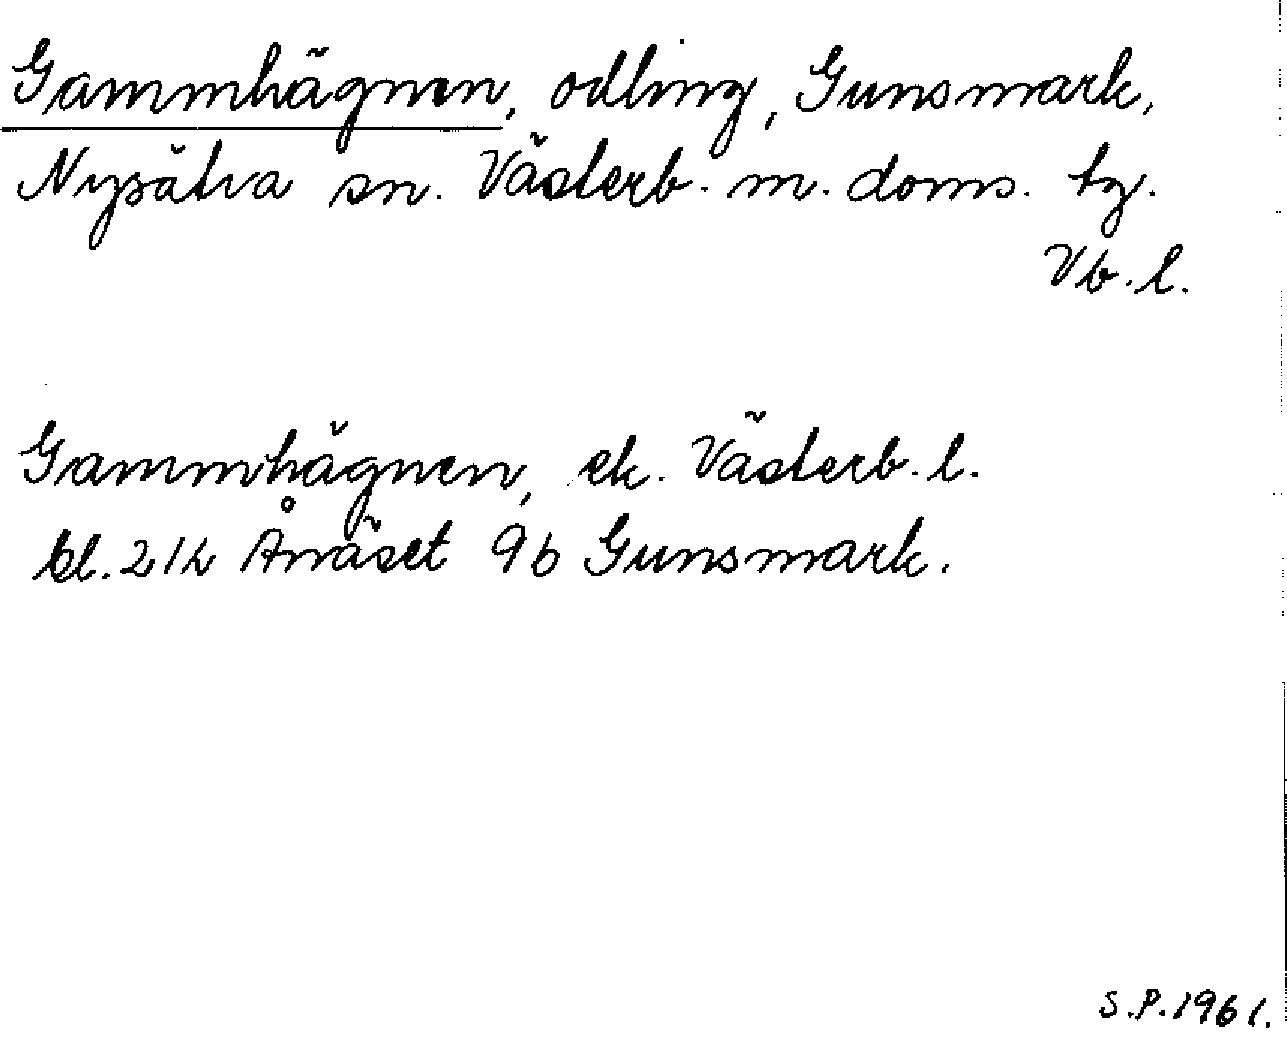 Gammhägnen, odling, Gunsmark,
Nysätra sn. Västerb. m. doms. tg.
Vb. l.
Gammhägnen, ek. Västerb. l.
bl. 21h Ånäset 9b Gunsmark.
S.P. 1961.